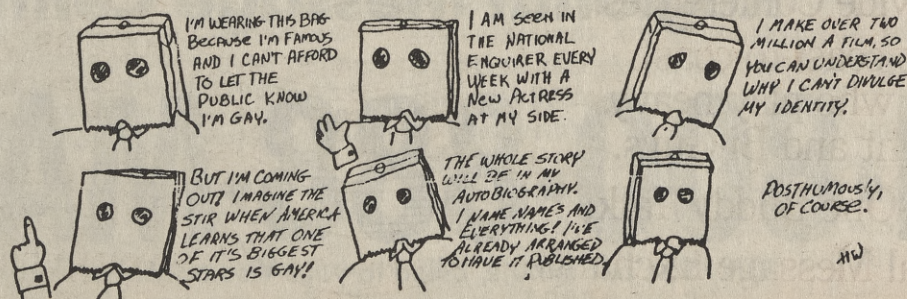 I'M WEARING THIS BAG
BECAUSE I'M FAMOUS
AND I CAN'T AFFORD
TO LET THE
PUBLIC KNOW
I'M GAY.
I AM SEEN IN
THE NATIONAL
ENQUIRER EVERY
WEEK WITH A
NEW ACTRESS
AT MY SIDE.
I MAKE OVER TWO
MILLION A FILM, SO
YOU CAN UNDERSTAND
WHY I CAN'T DIVULGE
MY IDENTITY.
BUT I'M COMING
OUT! IMAGINE THE
STIR WHEN AMERICA
LEARNS THAT ONE
OF IT'S BIGGEST
STARS IS GAY!
THE WHOLE STORY
WILL BE IN MY
AUTOBIOGRAPHY.
I NAME NAME'S AND
EVERYTHING! I'VE
ALREADY ARRANGED
TO HAVE IT PUBLISHED.
POSTHUMOUSLY,
OF COURSE.
HW